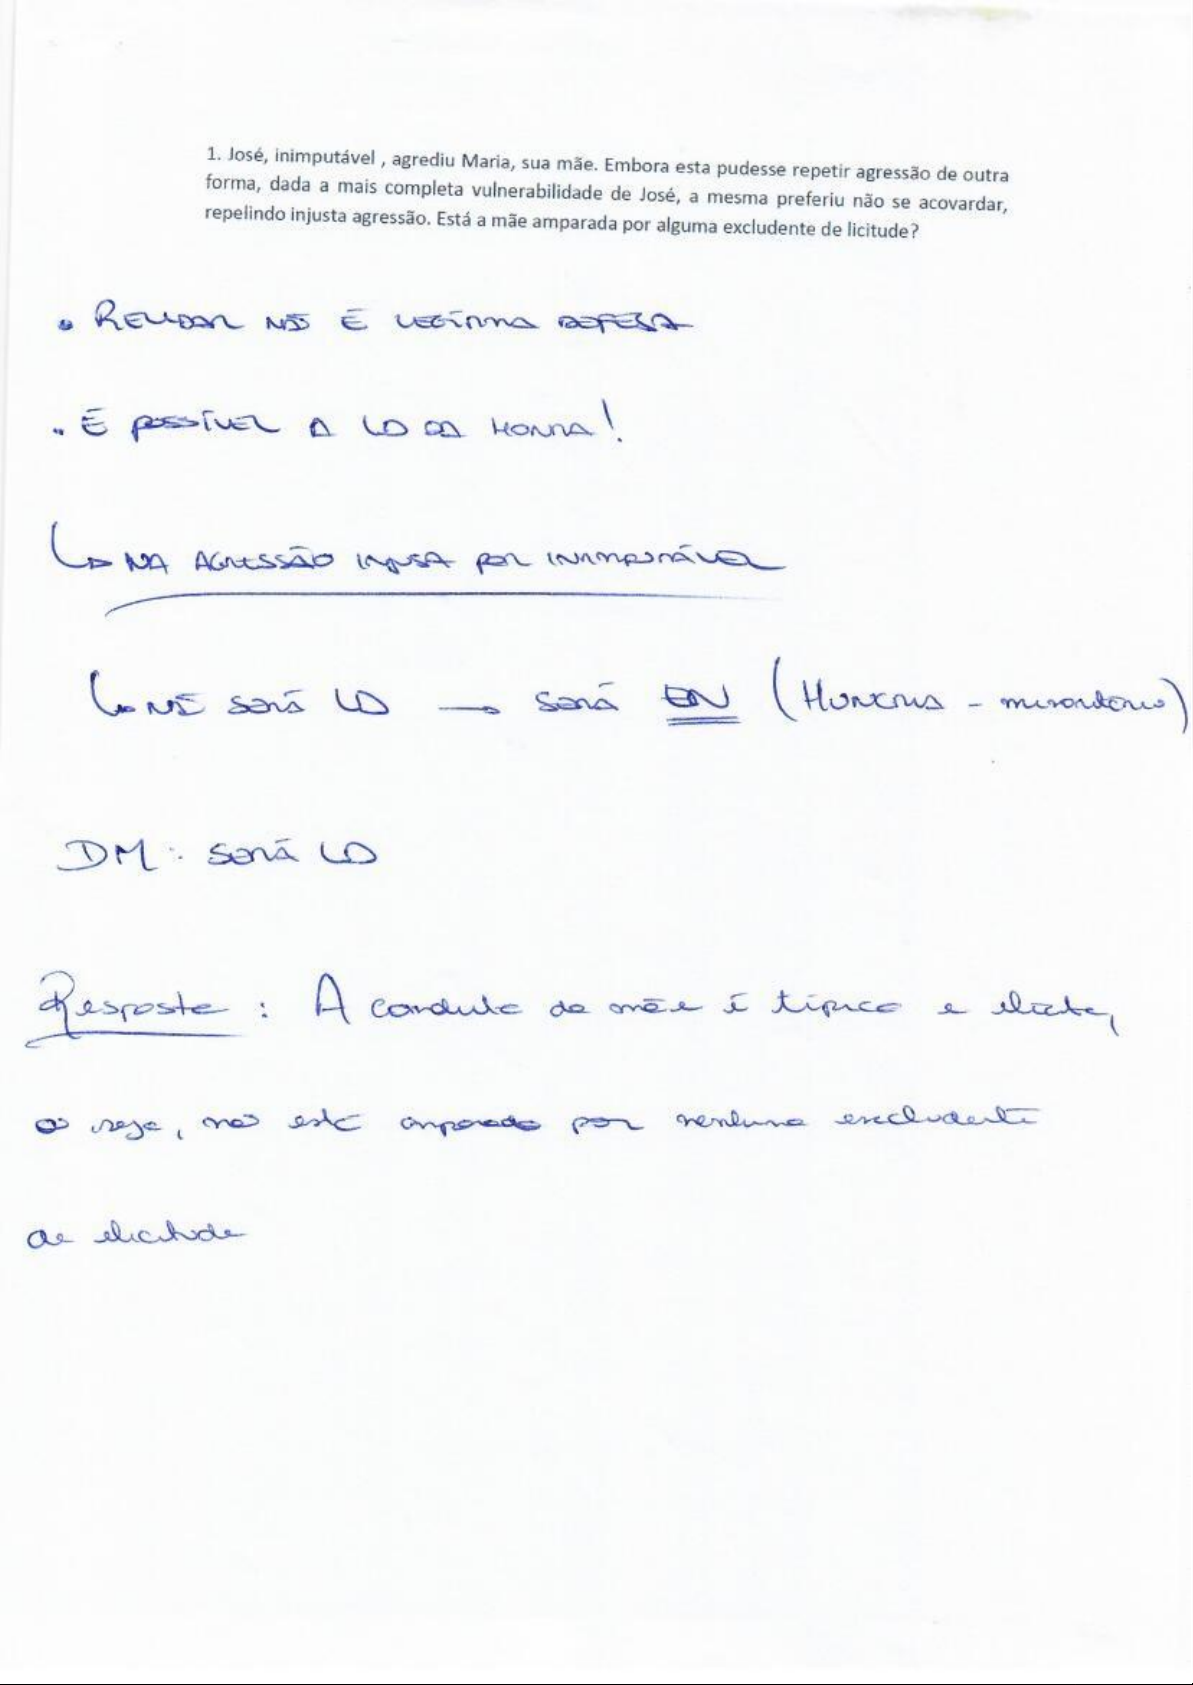 1. José, inimputável , agrediu Maria, sua mãe. Embora esta pudesse repetir agressão de outra
forma, dada a mais completa vulnerabilidade de José, a mesma preferiu não se acovardar,
repelindo injusta agressão. Está a mãe amparada por alguma excludente de licitude?
• REVIDAR NÃO É LEGÍTIMA DEFESA
• É POSSÍVEL A LD DA HONRA!
↳ NA AGRESSÃO INJUSTA POR INIMPUTÁVEL
↳ NÃO SERÁ LD → SERÁ EN (HUNGRIA - minoritário)
DM: SERÁ LD
Resposta: A conduta da mãe é típica e ilícita,
ou seja, não está amparada por nenhuma excludente
de ilicitude